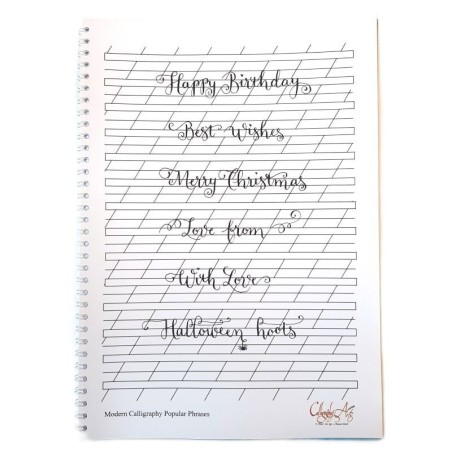 Happy Birthday
Best Wishes
Merry Christmas
Love from
With Love
Halloween hoots
Modern Calligraphy Popular Phrases